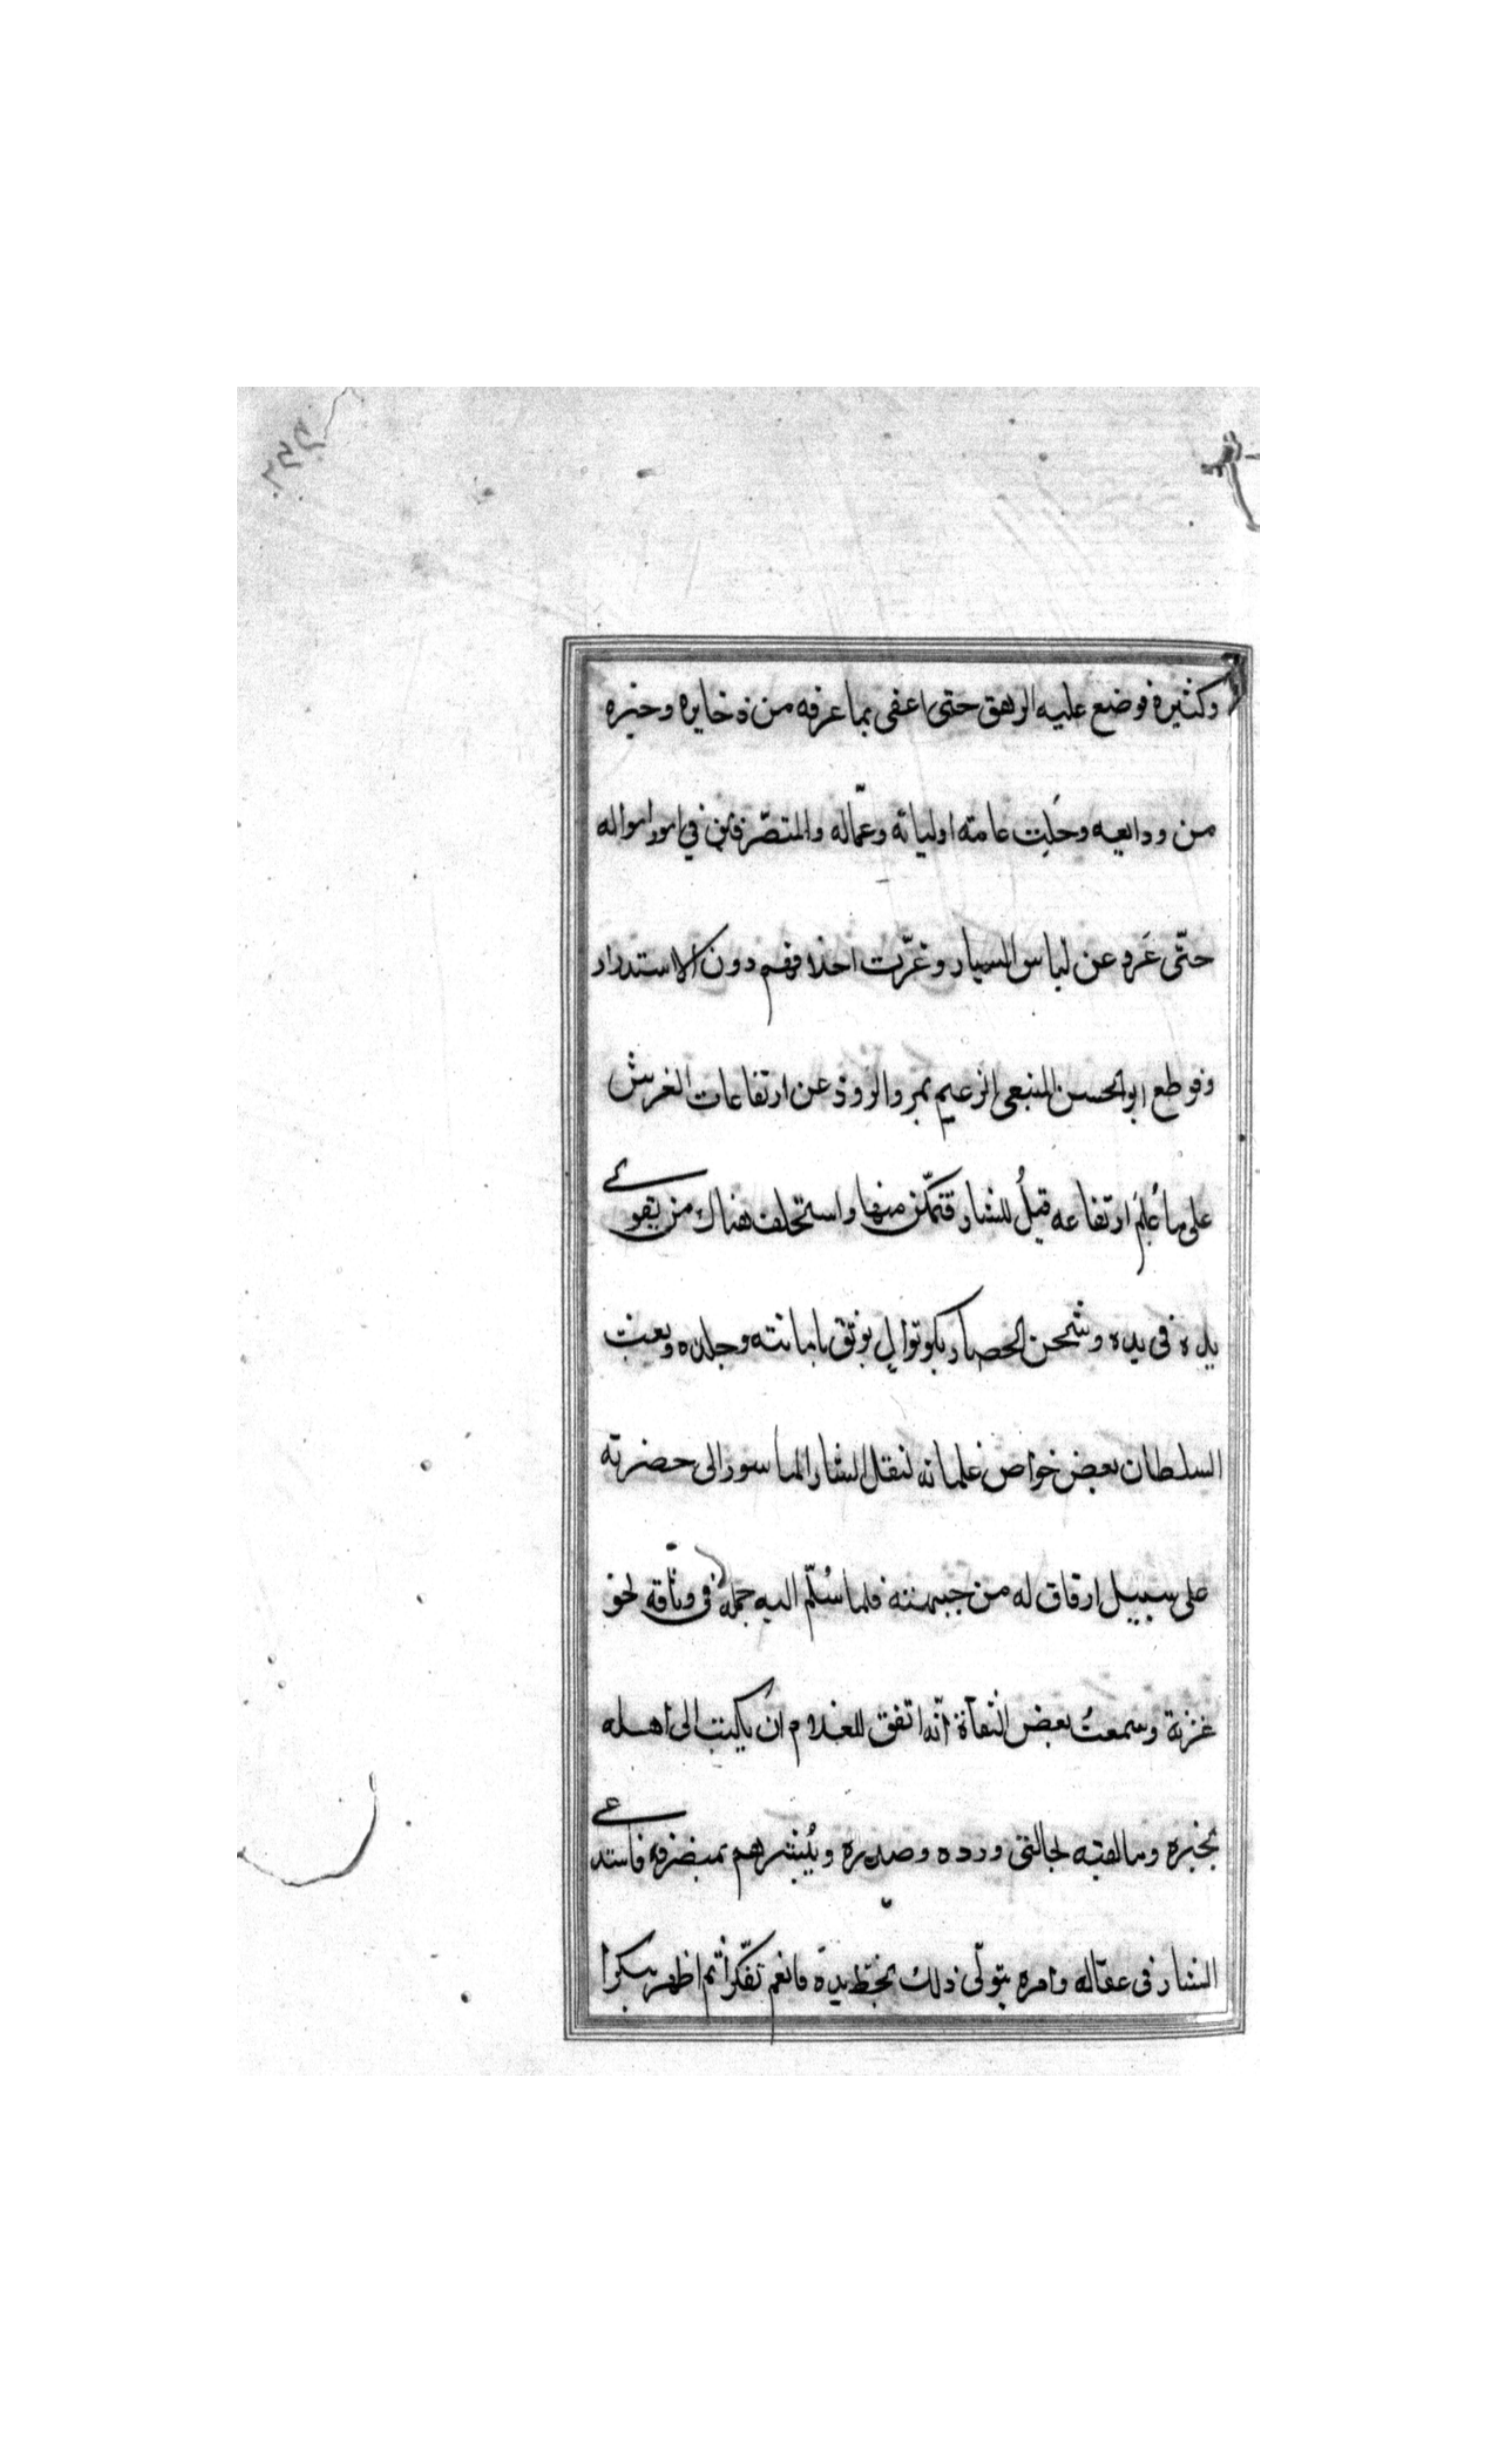 وكثيرة فوضع عليه الوهق حتى اعفى بما عرفه من ذخايره وخبره
من ودايعه وحُلِبت عامته اوليائه وعمّاله والمتصّرفين في امور امواله
حتّى عَرو عن لباس اليسار وغرّت اخلافهم دون الاستدرار
وقوطع ابو الحسن المنيعى الزعيم بمرو الروذ عن ارتفاعات الغرش
على ما عُلِمَ ارتفاعه قبلُ للشار فتمكّن منها واستخلف هناك من يقوي
يده فى يده وشحن الحصار بكوتوال يوثق بامانته وجلده وبعث
السلطان بعض خواص غلمانه لنقل الشار الماسور الى حضرته
على سبيل ارفاق له من جهته فلما سُلّم اليه حمله فى وثاقه نحو
غزنة وسمعتُ بعض الثقاة انّه اتفق للغلام ان يكتب الى اهله
بخبره وما لقيه لحالتى ورده وصدره ويُبشرهم بمنصرفه فاستدعي
الشار فى عقاله وامره بتولّى ذلك بخط يده فانعم تفكّراً ثم اظهر تنكرا